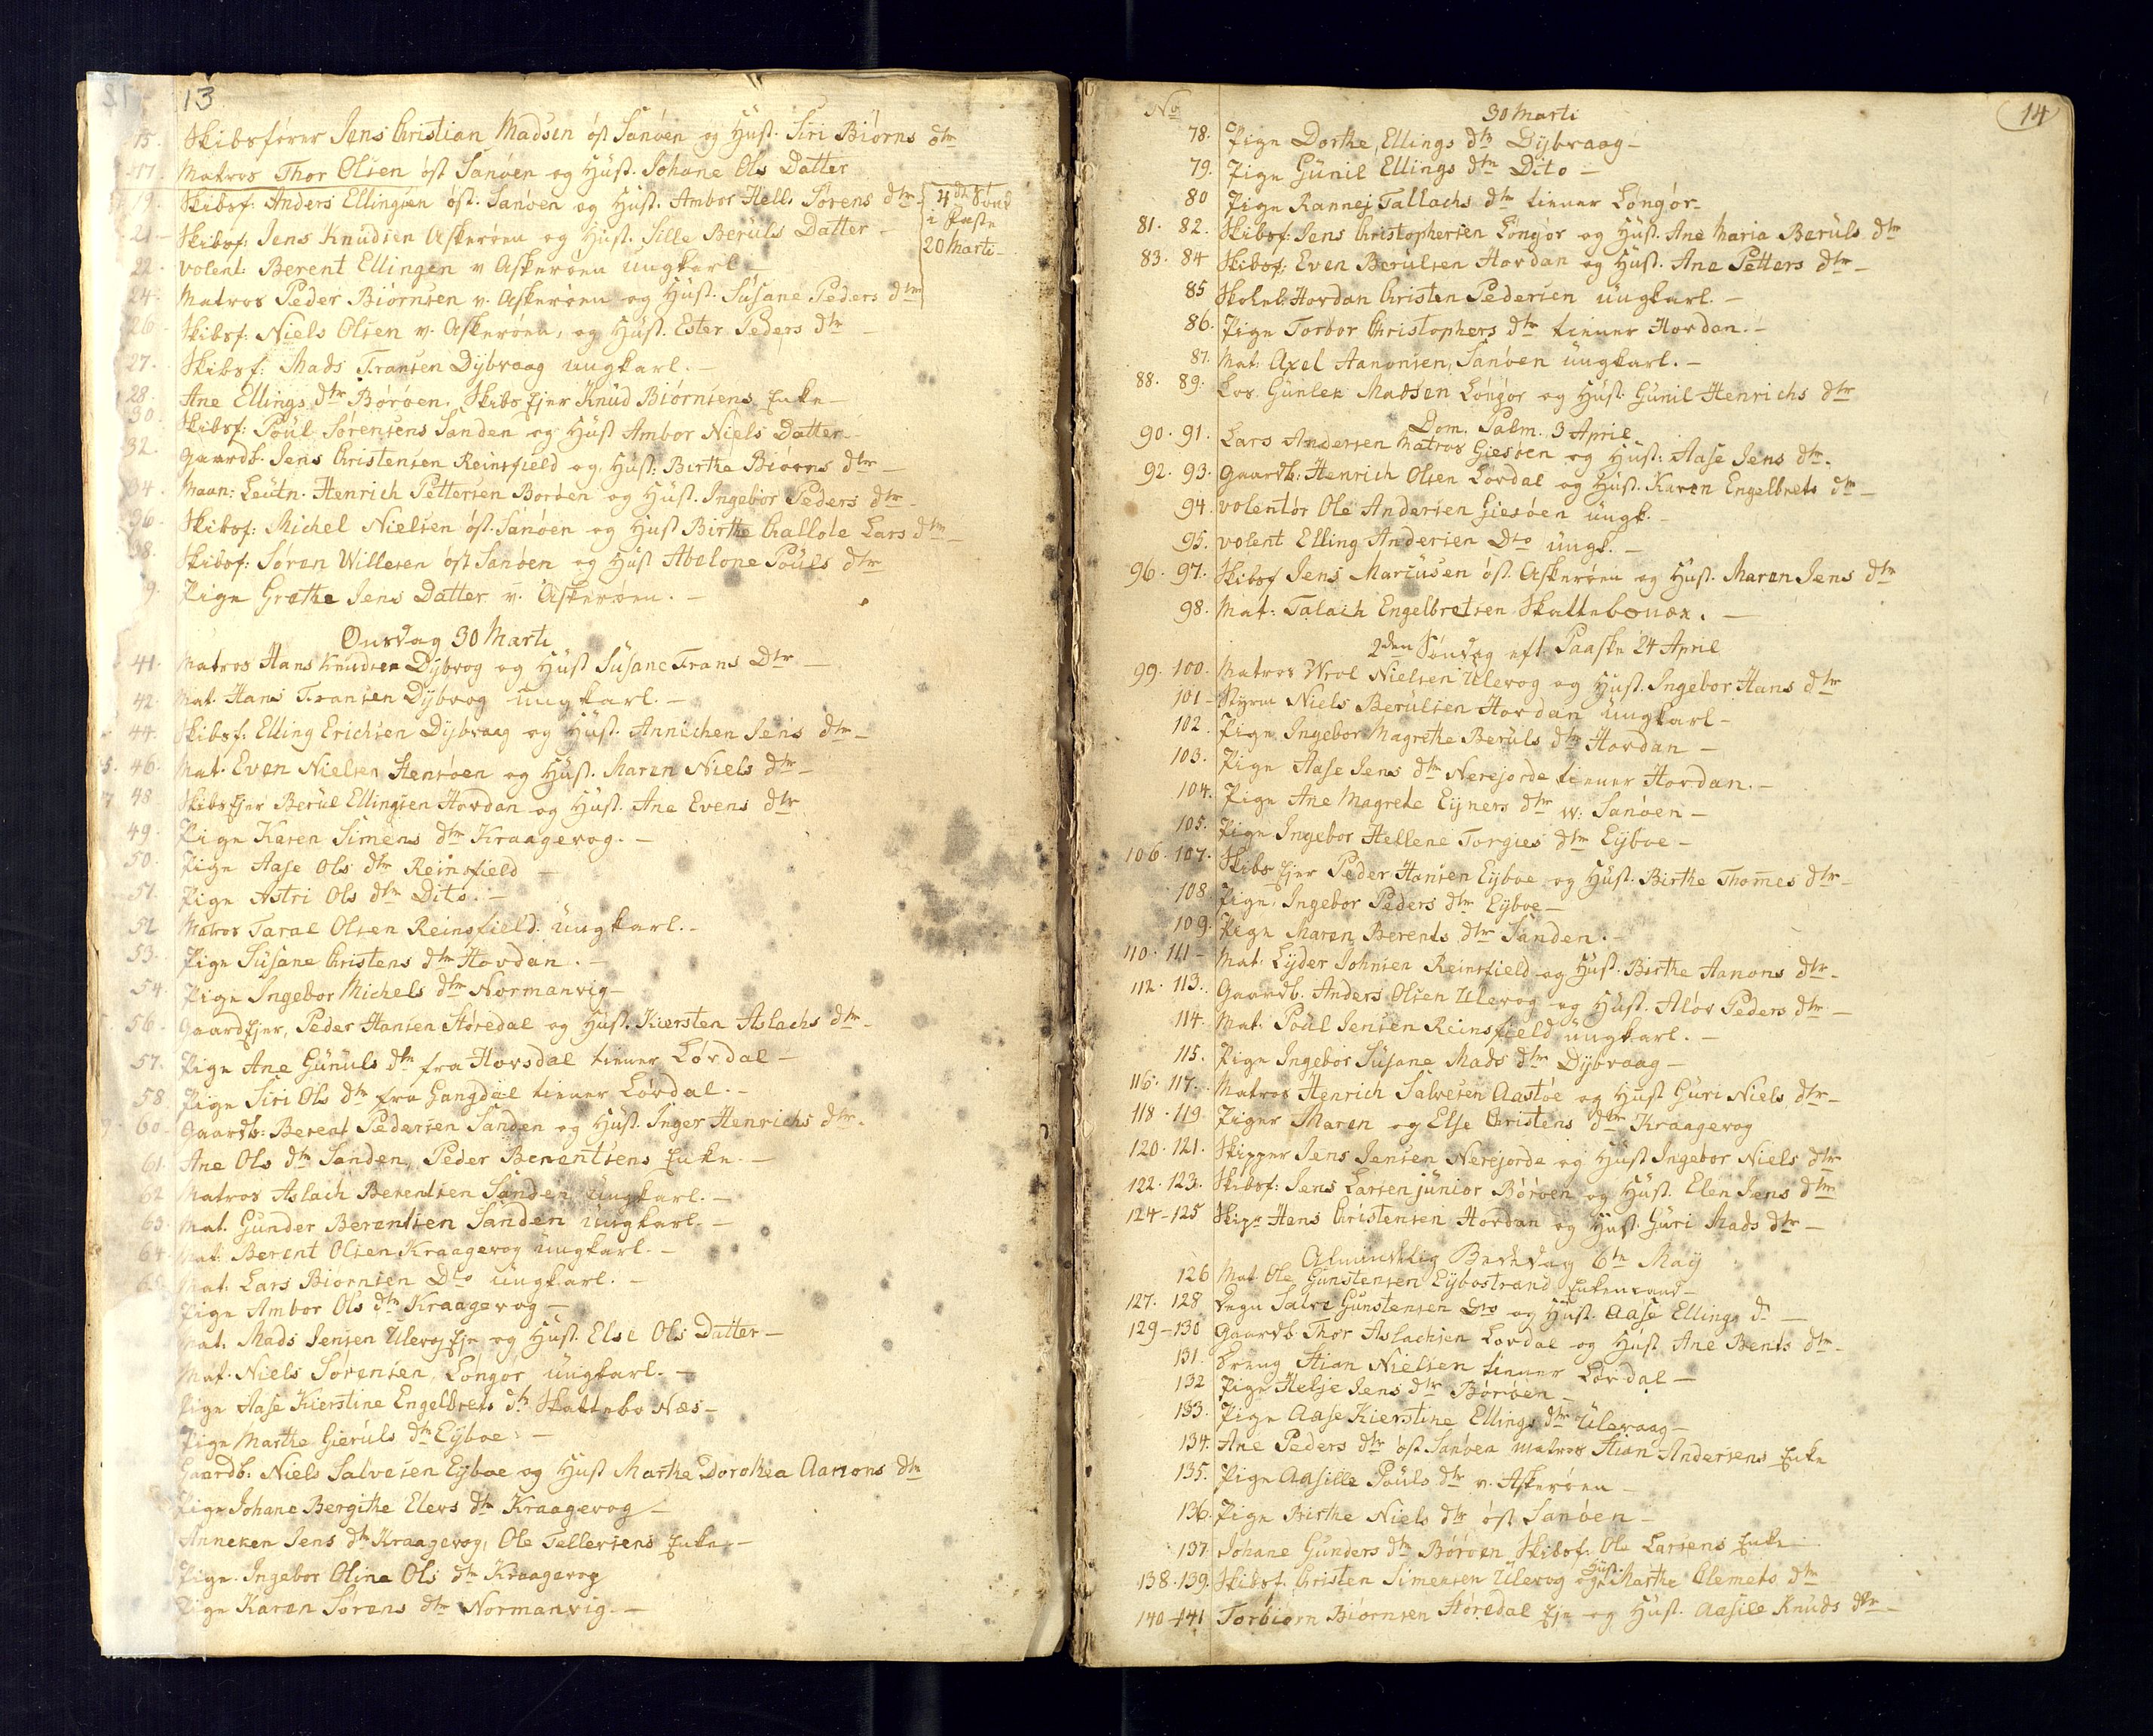 13
15. Skibsfører Jens Christian Madsen øst Sanøen og Hust. Siri Biørns dtr
17. Matros Thor Olsen øst Sanøen og Hust. Johane Ols Datter
19. Skibsf: Anders Ellingsen øst. Sanøen og Hust. Ambor Hell. Sørens dtr
4de Sønd i Faste 20 Marti
21. Skibsf: Jens Knudsen Askerøen og Hust. Sille Beruls Datter
22. Volent: Berent Ellingen v Askerøen ungkarl
24. Matros Peder Biørnsen v. Askerøen og Hust. Susane Peders dtr
26. Skibsf: Niels Olsen v. Askerøen, og Hust. Ester Peders dtr
27. Skibsf: Mads Fransen Dybvaag ungkarl.
28. Ane Ellings dtr Børøen, Skibs Ejer Knud Biørnsens Enke
30. Skibsf: Poul Sørensens Sanden og Hust Ambor Niels Datter
32. Gaardb. Jens Christensen Reinsfield og Hust: Birthe Biørns dtr
34. Maan: Leutn. Henrich Pettersen Borøen og Hust. Ingebor Peders dtr
36. Skibsf: Michel Nielsen øst. Sanøen og Hust Birthe Challote Lars dtr
38. Skibsf: Søren Willesen øst Sanøen og Hust Abelone Pouls dtr
39. Pige Grethe Jens Datter v. Askerøen.
Onsdag 30 Marti
41. Matros Hans Knudsen Dybvog og Hust Susane Frans Dtr
42. Mat. Hans Fransen Dybvog ungkarl.
44. Skibsf. Elling Erichsen Dybvaag og Hust. Annichen Jens dtr
46. Mat. Even Nielsen Stensøen og Hust. Maren Niels dtr
48 Skibs Ejer Berul Ellingsen Hovdan og Hust. Ane Evens dtr
49. Pige Karen Simens dtr Kraagevog.
50. Pige Aase Ols dtr Reinsfield
51. Pige Astri Ols dtr Dito.
52 Matros Taral Olsen Reinsfield. ungkarl.
53. Pige Susane Christens dtr Hovdan.
54. Pige Ingebor Michels dtr Normanvig
56. Gaard Ejer, Peder Hansen Støredal og Hust. Kiersten Aslachs dtr
57. Pige Ane Gunuls dtr fra Hovsdal tiener Lørdal
58. Pige Siri Ols dtr fra Gangdal tiener Lørdal.
60. Gaardb: Berent Pedersen Sanden og Hust. Inger Henrichs dtr
61. Ane Ols dtr Sanden, Peder Berentsens Enke.
62 Matros Aslach Berentsen Sanden ungkarl.
63. Mat. Gunder Berentsen Sanden ungkarl.
64. Mat. Berent Olsen Kraagevog ungkarl.
65. Mat: Lars Biørnsen Dto ungkarl.
Pige Ambor Ols dtr Kraagevog
Mat. Mads Jensen Ulevog Eje og Hust. Else Ols Datter
Mat. Niels Sørensen, Longør ungkarl.
Pige Aase Kierstine Engelbrets dtr Skattebo Næs
Pige Marthe Gieruls dtr Eyboe
Gaardb: Niels Salvesen Eyboe og Hust Marthe Dorothea Aanons dtr
Pige Johane Bergithe Elevs dtr Kraagevog
Anneken Jens dtr Kraagevog, Ole Tellersens Enke
Pige Ingebor Oline Ols dtr Kraagevog
Pige Karen Sørens dtr Normanvig.
14
No 30 Marti
78. Pige Dorthe Ellings dtr Dybvaag
79. Pige Gunil Ellings dtr Dito
80 Pige Rannej Tallachs dtr tiener Longør
81. 82. Skibsf: Jens Christophersen Longør og Hust. Ane Maria Beruls dtr
83. 84 Skibsf: Even Berulsen Hovdan og Hust. Ane Petters dtr
85 Skolel: Hovdan Christen Pedersen ungkarl.
86. Pige Torbor Christophers dtr tiener Hovdan.
87. Mat: Axel Aanonsen, Sanøen ungkarl.
88. 89. Los. Gunlek Madsen Longør og Hust. Gunil Henrichs dtr
Dom. Palm. 3 April
90. 91. Lars Andersen Matros Giesøen og Hust: Aase Jens dtr.
92. 93. Gaardb: Henrich Olsen Lørdal og Hust. Karen Engelbrets dtr
94. Volentør Ole Andersen Giesøen ungk.
95. Volent Elling Andersen Dto ungk.
96. 97. Skibsf Jens Marcusen øst. Askerøen og Hust. Maren Jens dtr
98. Mat: Talach Engelbretsen Skattebo
2den Søndag eft. Paaske 24 April
99. 100. Matros Wrol Nielsen Ulevog og Hust. Ingebor Hans dtr
101 Styrm Niels Berulsen Hovdan ungkarl
102. Pige Ingebor Magrethe Beruls dtr Hovdan
103. Pige Aase Jens dtr Nerejorde tiener Hovdan.
104. Pige Ane Magrete Ejners dtr w: Sanøen
105. Pige Ingebor Hellene Torgies dtr Eyboe
106. 107. Skibs Ejer Peder Hansen Eyboe og Hust. Birthe Thomes dtr
108 Pige Ingebor Peders dtr Eyboe
109. Pige Maren Berents dtr Sanden.
110. 111 Mat. Lyder Johnsen Reinsfield og Hust. Birthe Aanons dtr
112. 113. Gaardb. Anders Olsen Ulevog og Hust. Aløv Peders dtr
114. Mat: Poul Jensen Reinsfield ungkarl.
115. Pige Ingebor Susane Mads dtr Dybvaag
116. 117. Matros Henrich Salvesen Aastøe og Hust Guri Niels dtr
118. 119. Piger Maren og Else Christens dtr Kraagevog
120. 121. Skipper Jens Jensen Nerejorde og Hust Ingebor Niels dtr
122. 123. Skibsf: Jens Larsen junior Børøen og Hust. Elen Jens dtr
124-125 Skipr Hans Christensen Hovdan og Hust. Guri Mads dtr
Almindelig Bededag 6te May
126 Mat. Ole Gunstensen Eybostrand Enkemand
127. 128 Degn Salve Gunstensen Dto og Hust. Aase Ellings d
129-130 Gaardb. Thor Aslachsen Lovdal og Hust Ane Bents dtr
131. Dreng Stian Nielsen tiener Lovdal
132 Pige Helje Jens dtr Børøen
133. Pige Aase Kierstine Ellings dtr Ulevaag
134. Ane Peders dtr øst Sanøen Matros Stian Andersens Enke
135. Pige Aasille Pouls dtr v. Askerøen
136. Pige Birthe Niels dtr øst Sanøen
137. Johane Gunders dtr Børøen Skibsf: Ole Larsens Enke
138. 139. Skibsf. Christen Simensen Ulevog og Hust. Marthe Clemets dtr
140-141 Torbiørn Biørnsen Støredal Eje og Hust. Aasile Knuds dtr